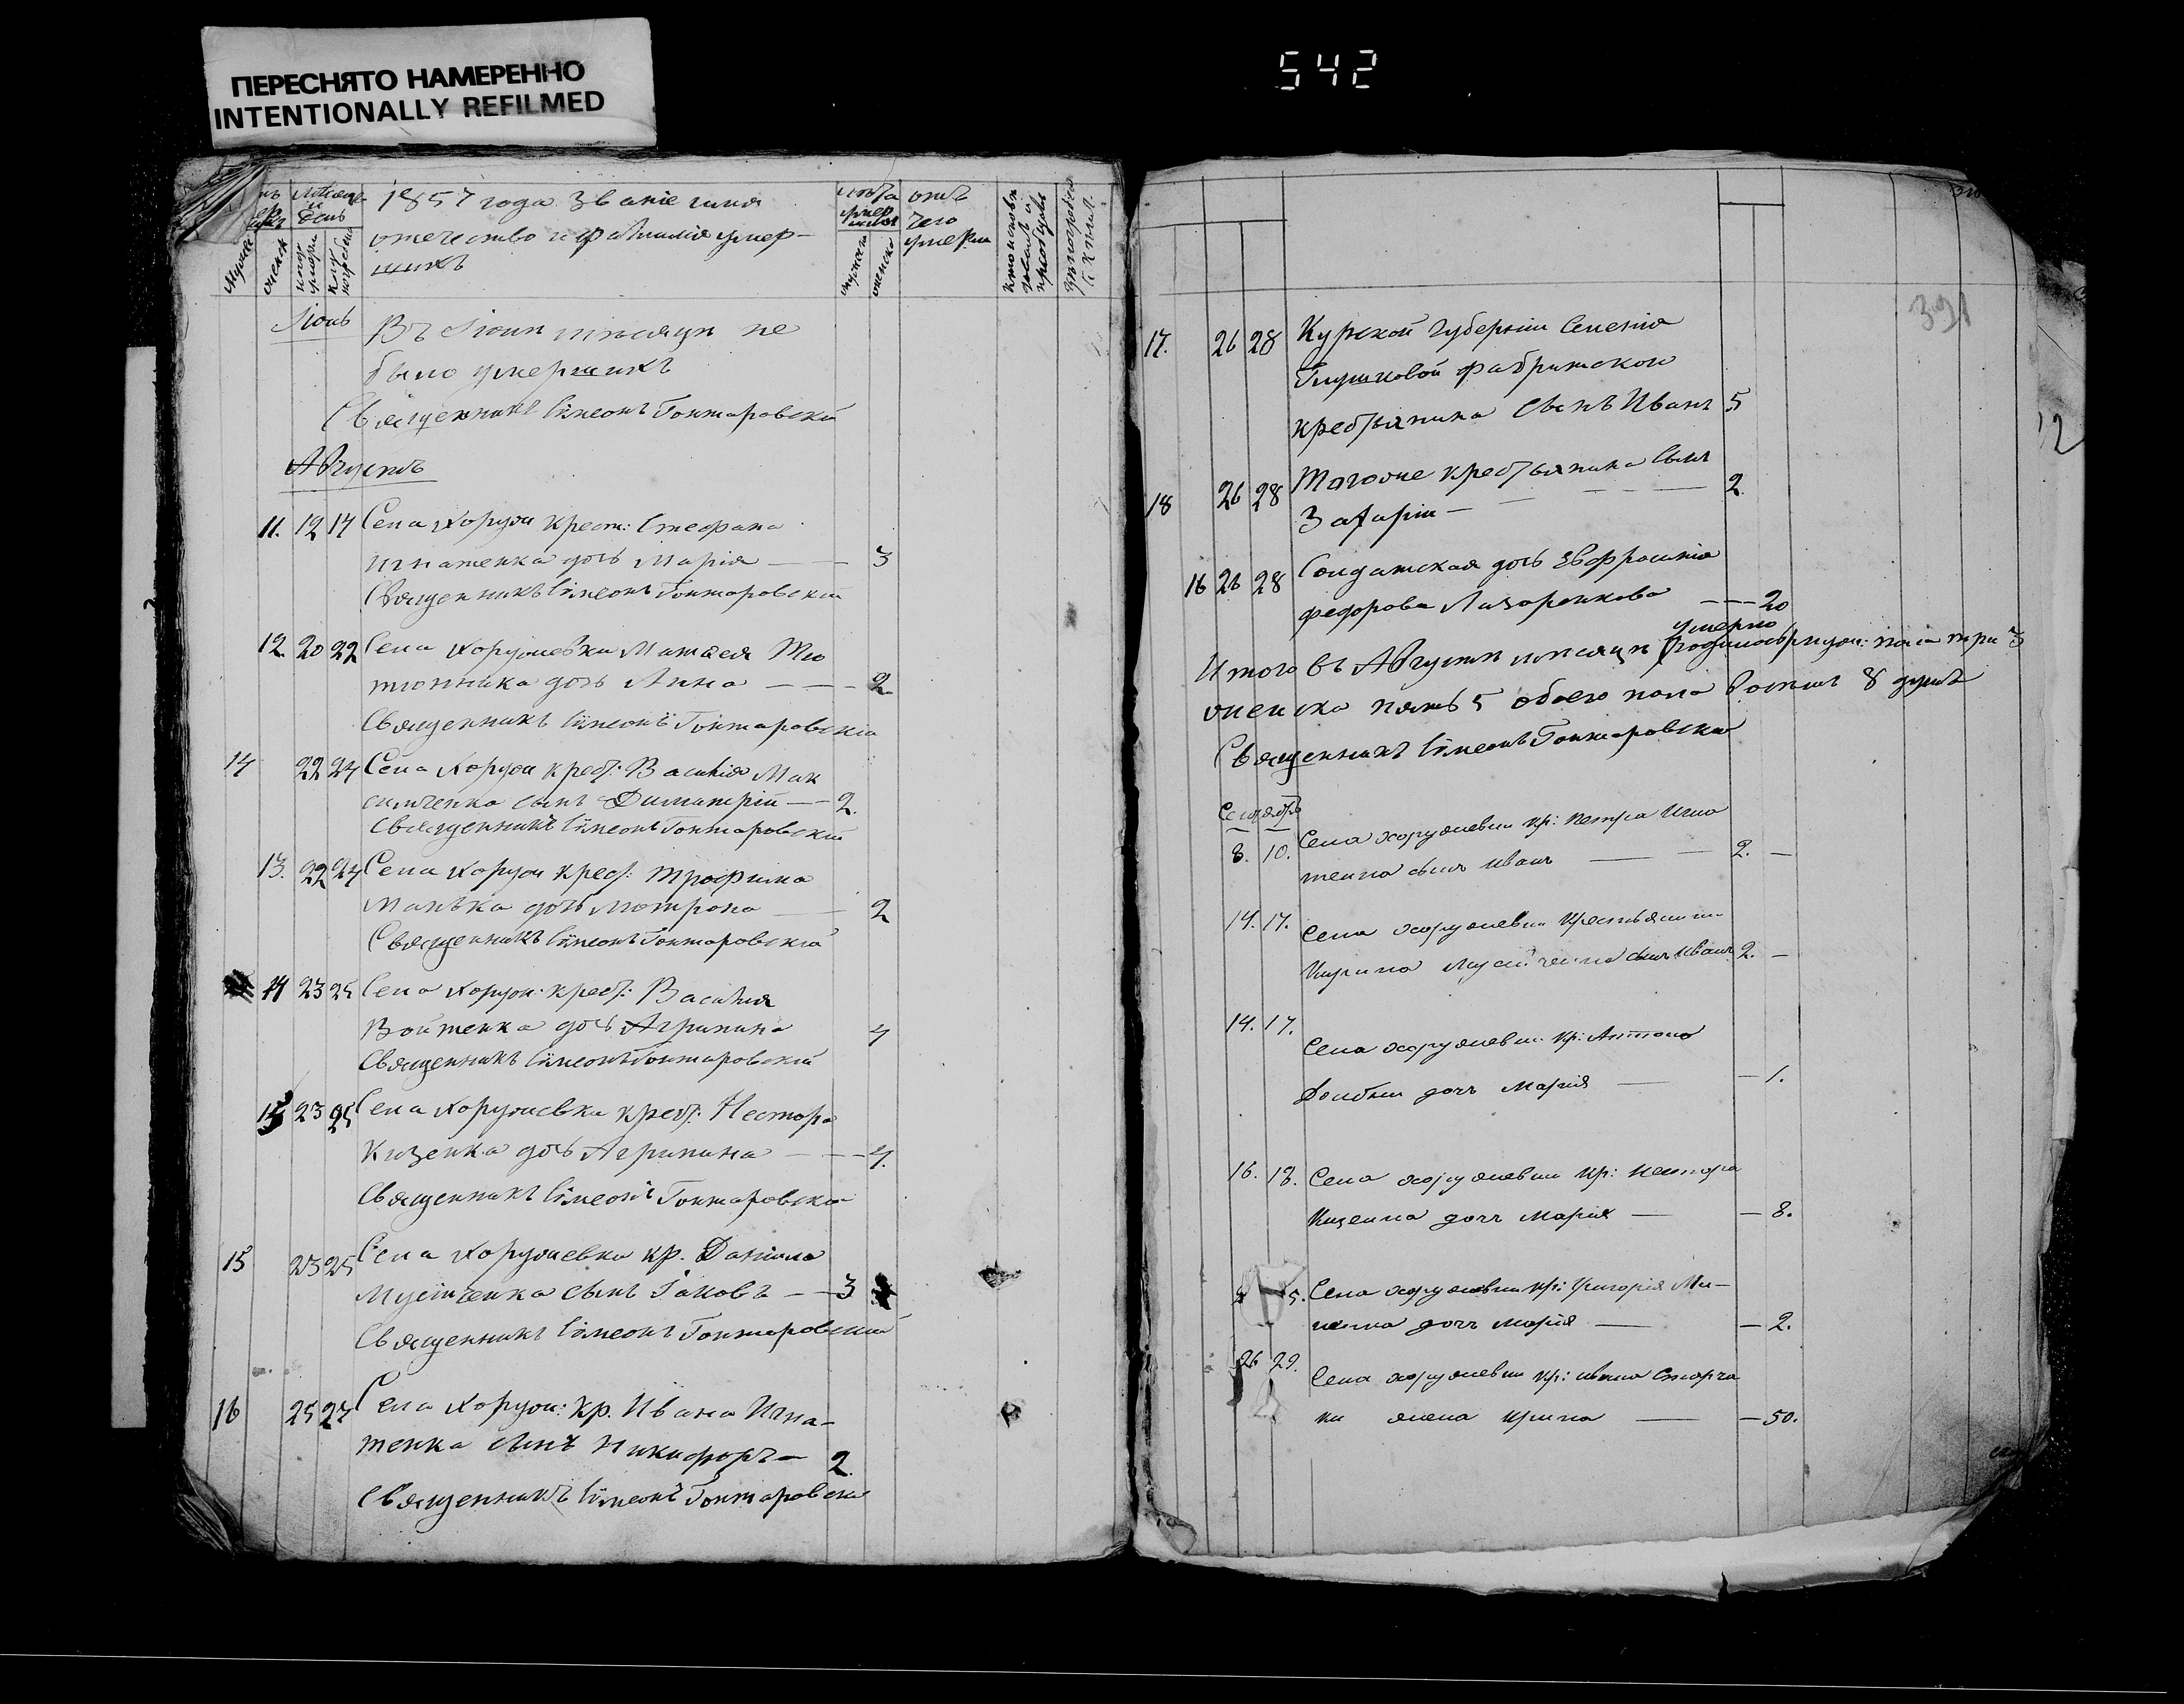 ПЕРЕСНЯТО НАМЕРЕННО
INTENTIONALLY REFILMED
542
Мѣсяцъ
и
день
1857 года Званіе имя
отечество и фамилія умер-
шихъ
лѣта
умер
шихъ
отъ
чего
умерли
Іюль
Въ Іюли мѣсяцѣ не
было умершихъ
Священникъ Сѵмеонъ Гонтаровскій
Августъ
11. 12 14 Села Хоруж крест: Стефана
Игнатенка дочь Марія — 3
Священникъ Сѵмеонъ Гонтаровскій
12. 20 22 Села Хоружевки Матвея Тю
тюнника дочь Анна — 2
Священникъ Сѵмеонъ Гонтаровскій
14 22 24 Села Хоруж крест: Василія Мак
симченка сынъ Димитрій — 2.
Священникъ Сѵмеонъ Гонтаровскій
13. 22 24 Села Хоруж крест: Трофима
Манька дочь Мотрона — 2
Священникъ Сѵмеонъ Гонтаровскій
14 23 25 Села Хоруж: крест: Василия
Войтенка дочь Агрипина 4
Священникъ Сѵмеонъ Гонтаровскій
15 23 25 Села Хоружевки крест: Нестора
Кизенка дочь Агрипина — 4.
Священникъ Сѵмеонъ Гонтаровскій
15 23 25 Села Хоружевки кр. Даніила
Мусіиченка сынъ Іаковъ — 3
Священникъ Сѵмеонъ Гонтаровскій
16 25 27 Села Хоруж: кр. Ивана Игна-
тенка сынъ Никифоръ — 2.
Священникъ Сѵмеонъ Гонтаровскій
391
12
17. 26 28 Курской Губерніи Селенія
Глушковой фабрижскаго
крестьянина сынъ Иванъ 5
18 26 28 Тогоже крестьянина сынъ
Захарій — 2.
16 26 28 Солдатская дочь Евфросинія
Федорова Лазаренкова — 20
умерло
Итого въ Августѣ мѣсяцѣ муж: пола три 3
женска пять 5 обоего пола 8 душъ
Священникъ Сѵмеонъ Гонтаровскій
Сентябрь
8. 10. Села хоружевки кр: Петра Игна
тенка сынъ Иванъ — 2. —
14. 17. Села хоружевки крестьянина
Кирила Мусійченка сынъ Иванъ 2. —
14. 17. Села хоружевки кр: Антона
Долбни дочь Марія — 1.
16. 18. Села хоружевки кр: Нестора
Кизенка дочь Мария — 8.
5. Села хоружевки кр: Григорія Ми-
ненка дочь Марія — 2.
26 29. Села хоружевки кр: Ивана Сторча
ки жена Ирина — 50.